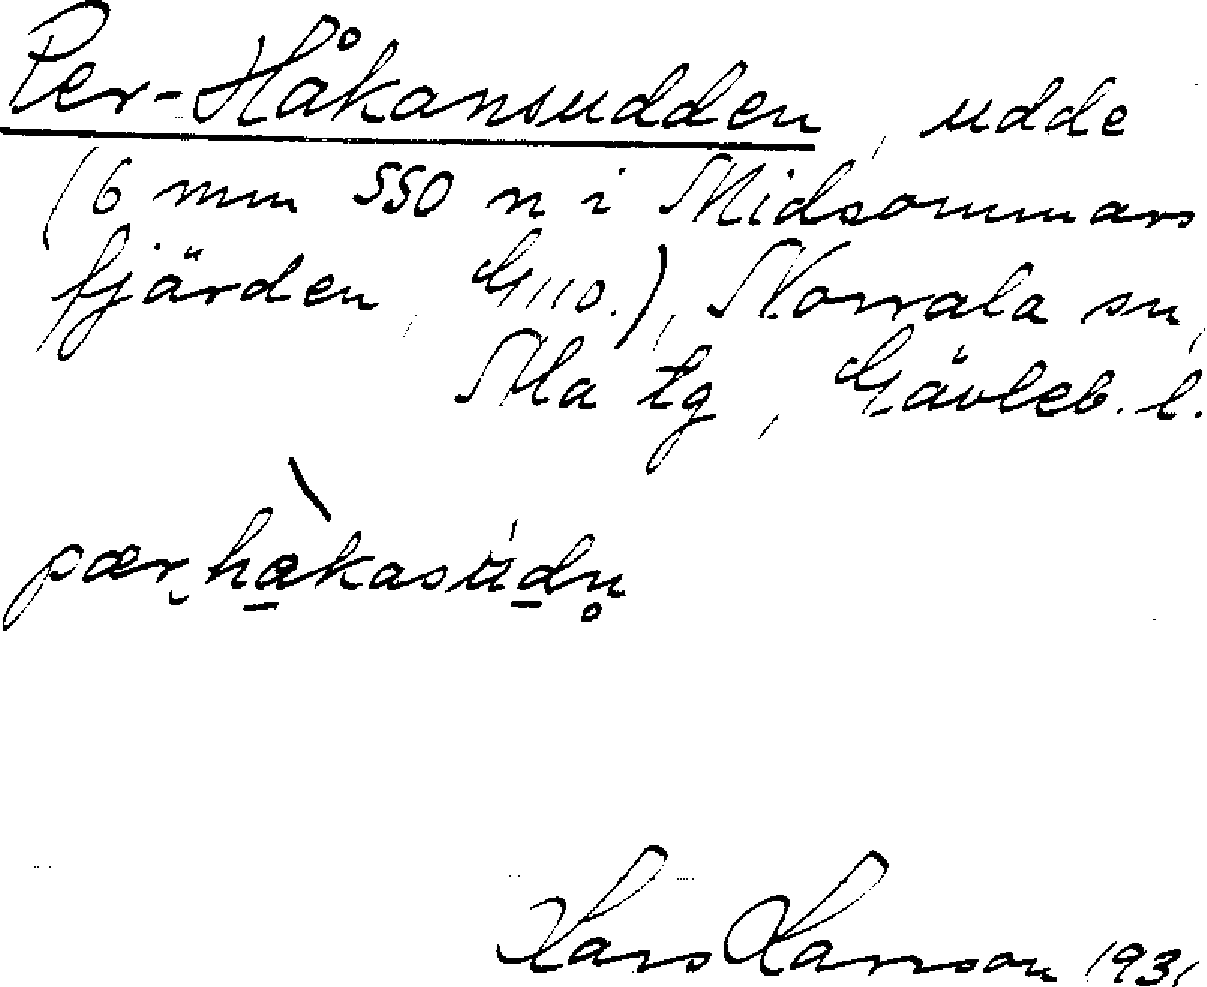 Per-Håkansudden, udde
(6 mm SSO n i Midsommars
fjärden, G110.), Norrala sn,
Ala tg, Gävleb. l.
pær hakasüdn̥
Lars Larsson 1931